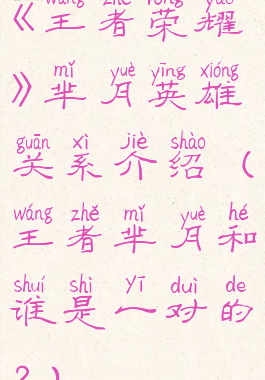 wáng zhě róng yào
《王者荣耀
mǐ yuè yīng xióng
》芈月英雄
guān xì jiè shào
关系介绍（
wáng zhě mǐ yuè hé
王者芈月和
shuí shì yī duì de
谁是一对的
？）